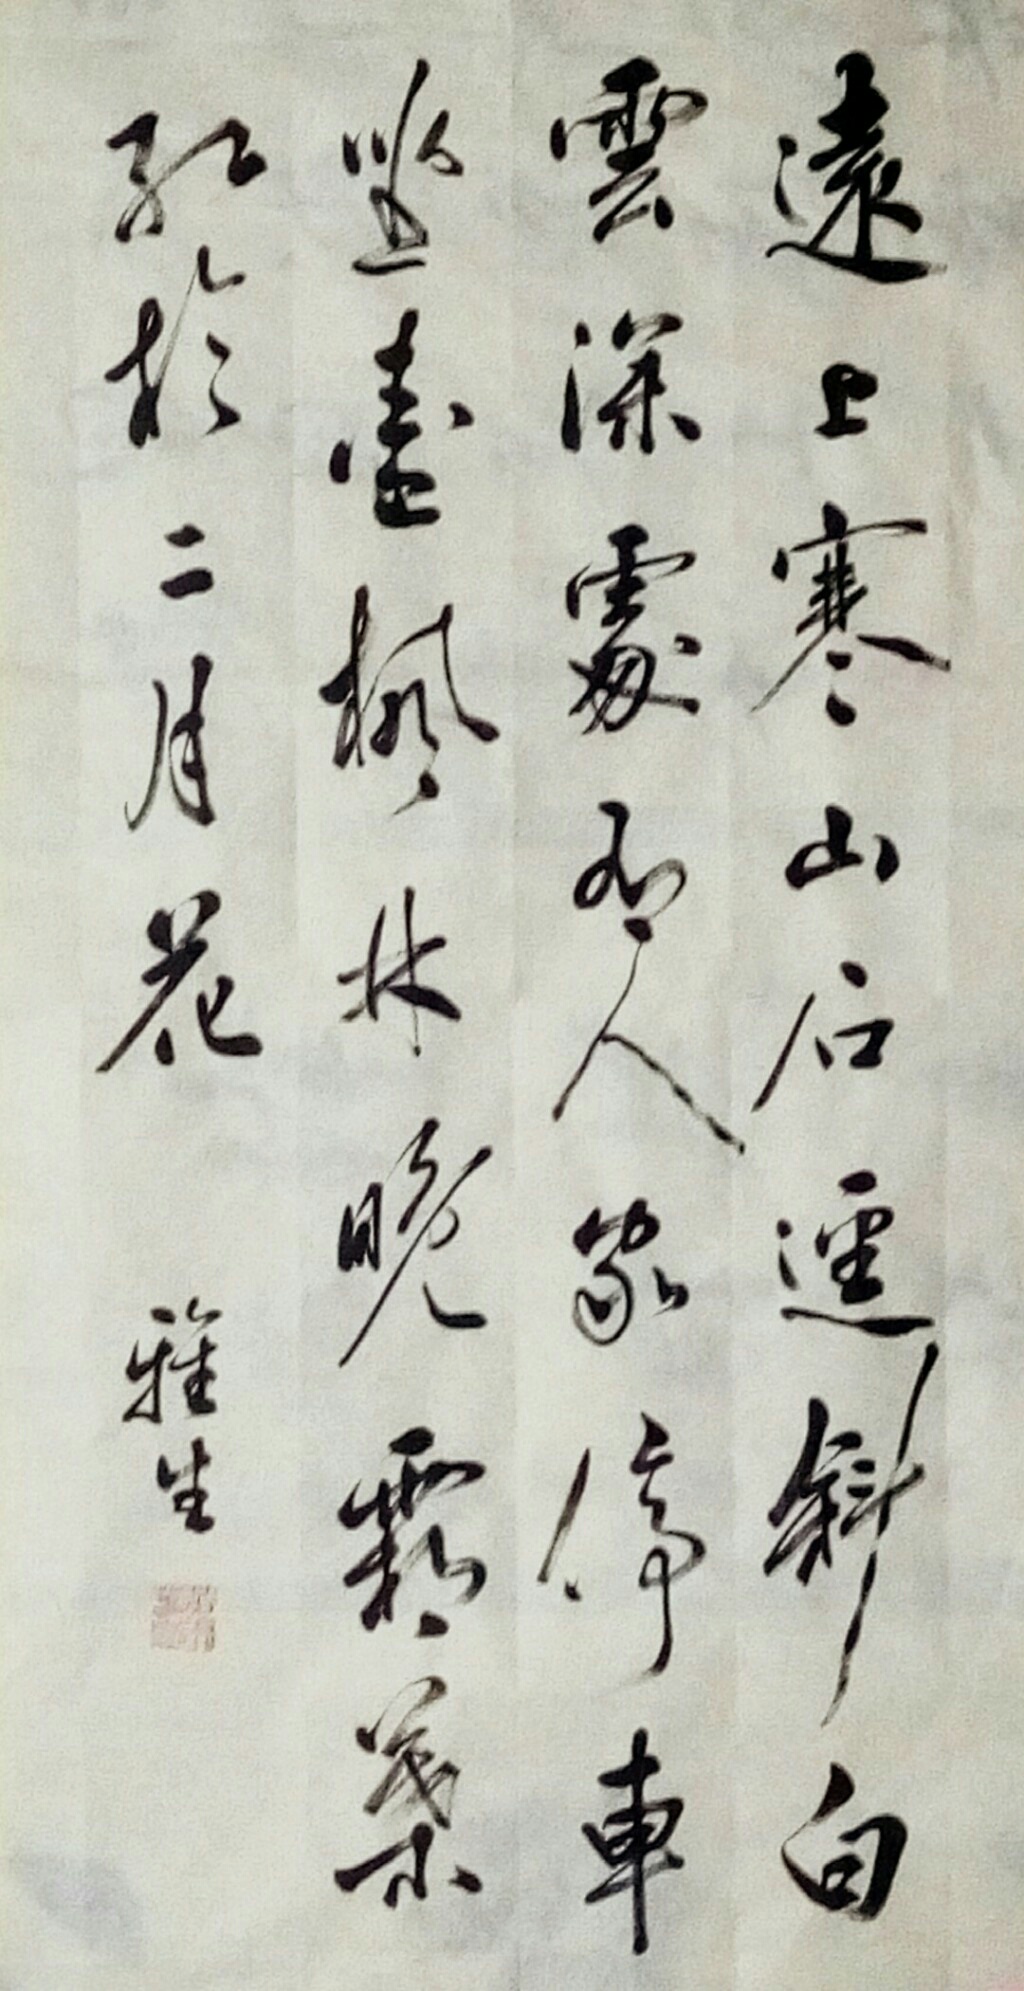 遠上寒山石逕斜白
雲深處有人家停車
坐愛楓林晚霜葉
紅於二月花
雅生